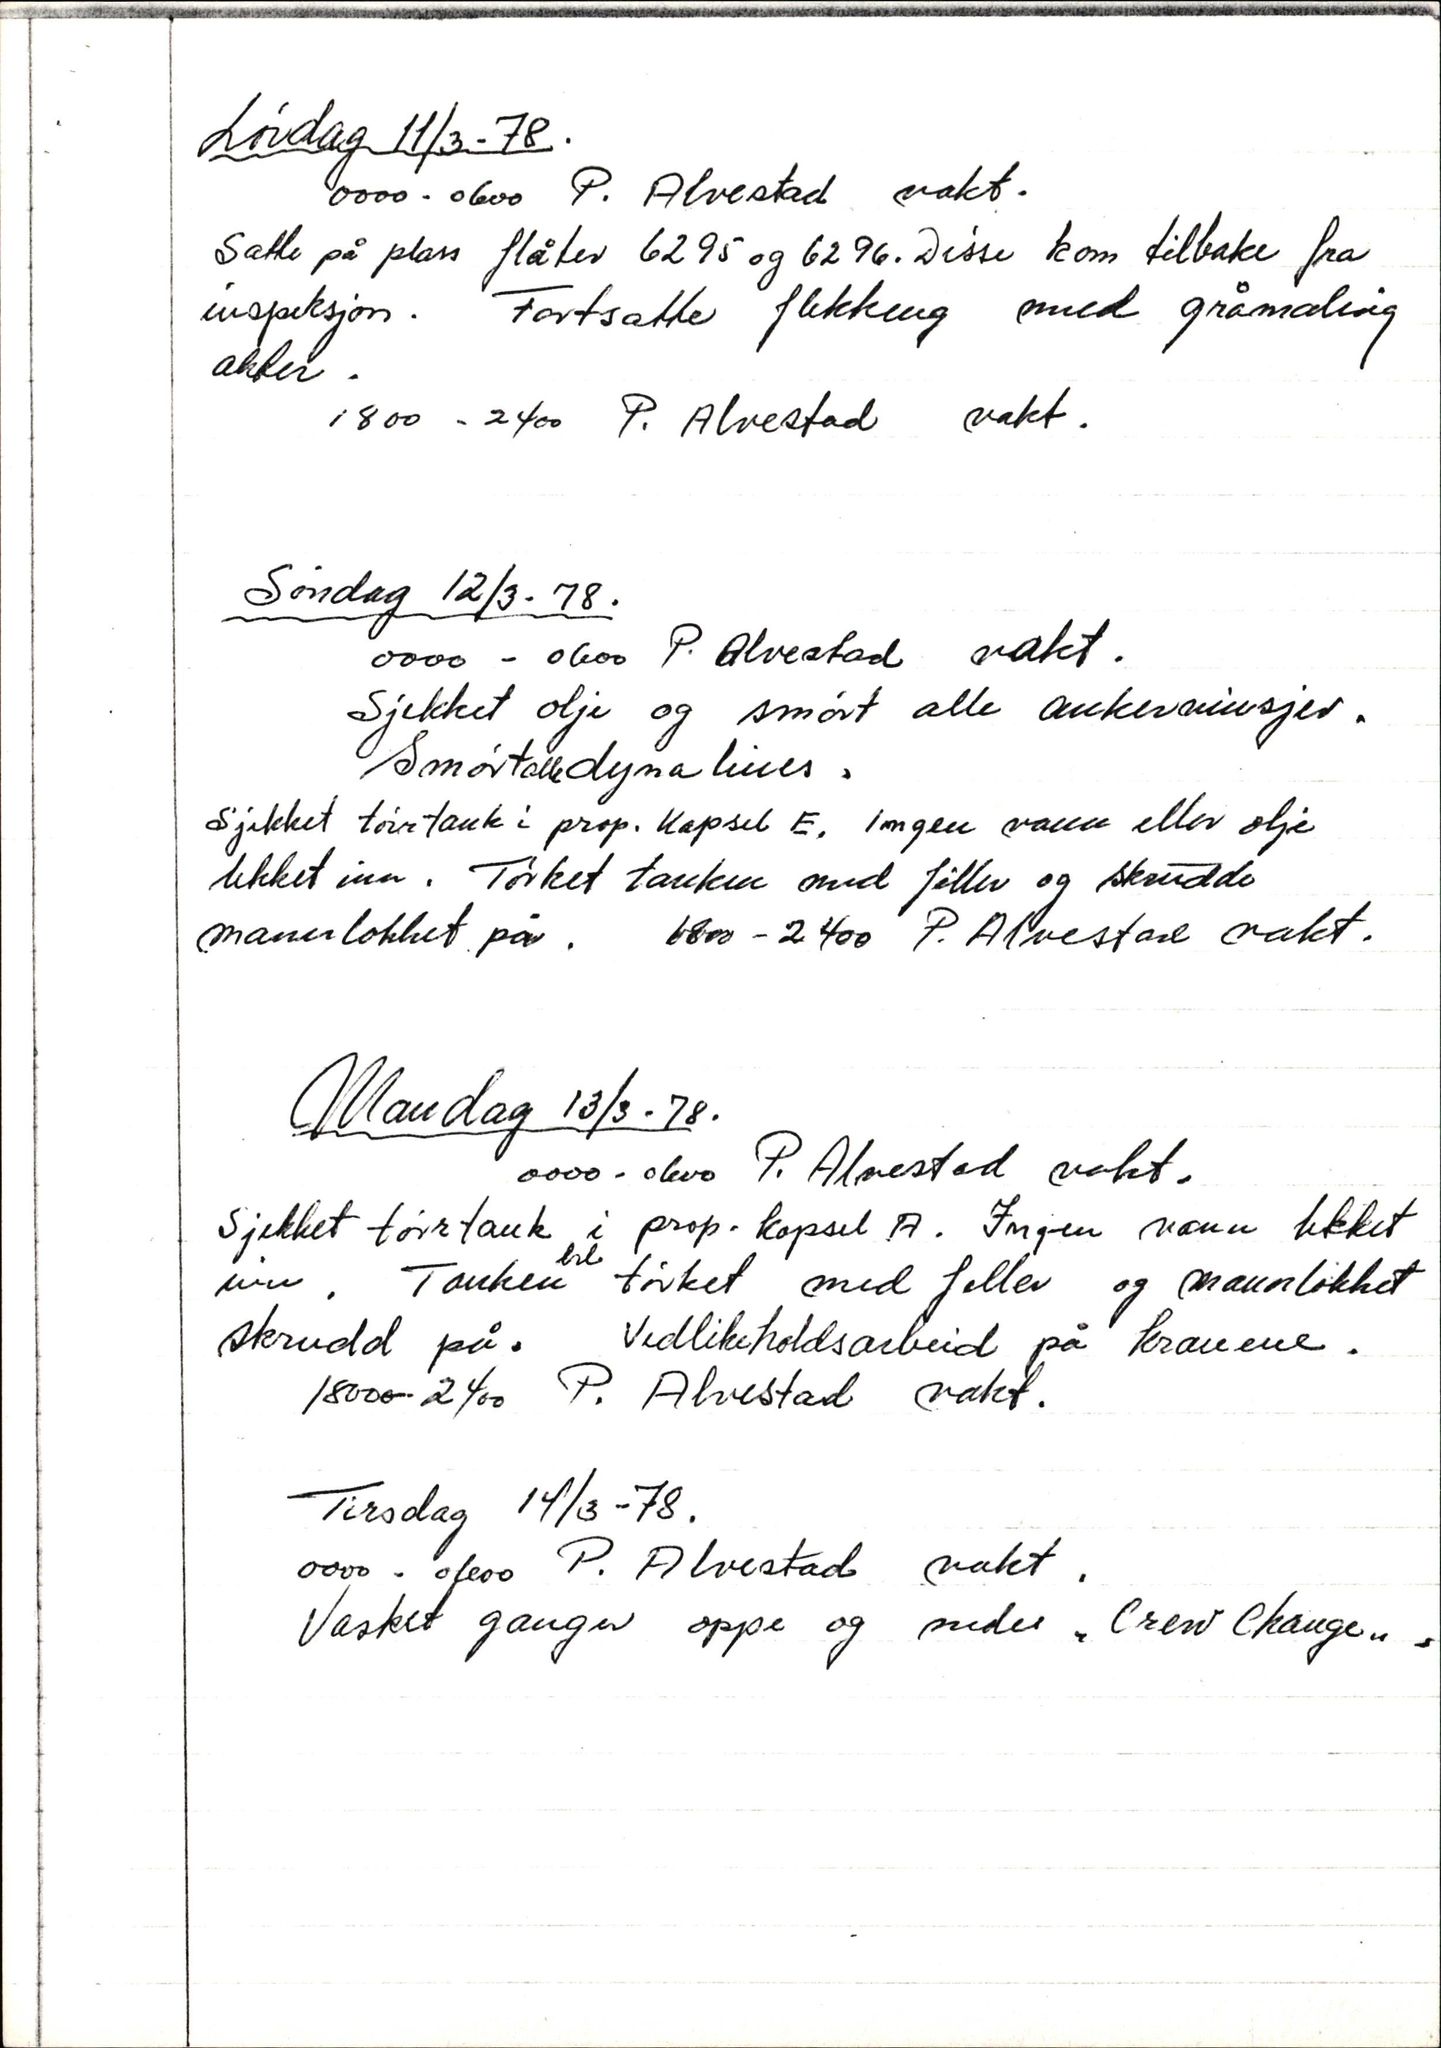 Lördag 11/3-78.
0000 - 0600 P. Alvestad vakt.
Satte på plass flåter 6295 og 6296. Disse kom tilbake fra
inspeksjon. Fortsatte flekking med gråmaling
akter.
1800 - 2400 P. Alvestad vakt.
Söndag 12/3-78.
0000 - 0600 P. Alvestad vakt.
Sjekket olje og smört alle ankervinsjer.
Smört alle dyna lines.
Sjekket törrtank i prop. kapsel E. Ingen vann eller olje
lekket inn. Törket tanken med filler og skrudde
mannlokket på. 1800 - 2400 P. Alvestad vakt.
Mandag 13/3-78.
0000 - 0600 P. Alvestad vakt.
Sjekket törrtank i prop. kapsel A. Ingen vann lekket
inn. Tanken ble törket med filler og mannlokket
skrudd på. Vedlikeholdsarbeid på kranene.
1800 - 2400 P. Alvestad vakt.
Tirsdag 14/3-78.
0000 - 0600 P. Alvestad vakt.
Vasket ganger oppe og nede "Crew Change".